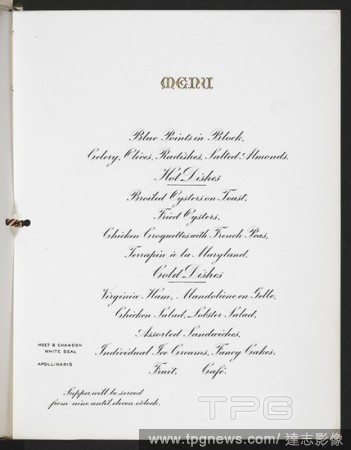 MENU
Blue Points in Block,
Celery, Olives, Radishes, Salted Almonds.
Hot Dishes
Broiled Oysters on Toast,
Fried Oysters,
Chicken Croquettes with French Peas,
Terrapin à la Maryland.
Cold Dishes
Virginia Ham, en Gelle,
Chicken Salad, Lobster Salad,
Assorted Sandwiches,
MOET & CHANDON
WHITE SEAL
Individual Ice Creams, Fancy Cakes.
APOLLINARIS
Fruit. Café.
Supper will be served
from nine until eleven o'clock.
TPG
www.tpgnews.com / 達志影像